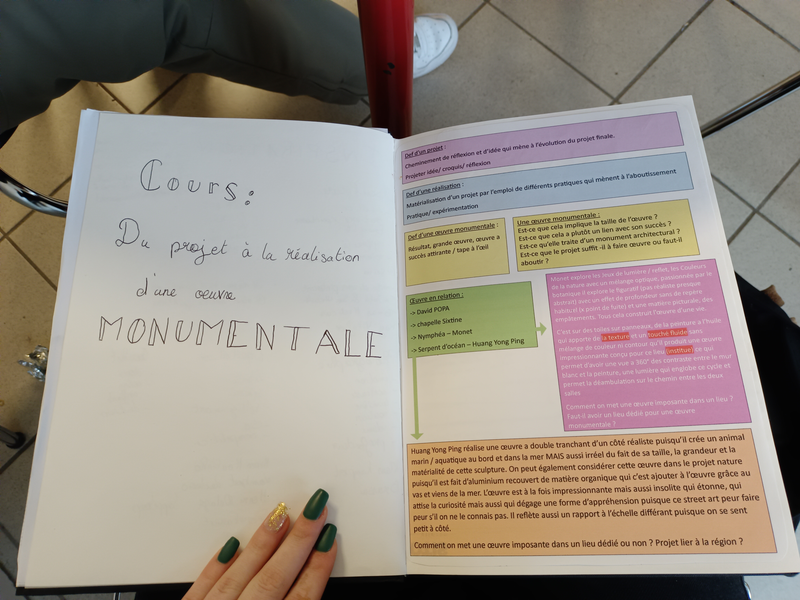 Cours:
Du projet à la réalisation
d'une oeuvre
MONUMENTALE
Def d'un projet :
Cheminement de réflexion et d'idée qui mène à l'évolution du projet finale.
Projeter idée/ croquis/ réflexion
Def d'une réalisation :
Matérialisation d'un projet par l'emploi de différents pratiques qui mènent à l'aboutissement
Pratique/ expérimentation
Def d'une œuvre monumentale :
Résultat, grande œuvre, œuvre a
succès attirante / tape à l'œil
Une œuvre monumentale :
Est-ce que cela implique la taille de l'œuvre ?
Est-ce que cela a plutôt un lien avec son succès ?
Est-ce qu'elle traite d'un monument architectural ?
Est-ce que le projet suffit -il à faire œuvre ou faut-il
aboutir ?
Œuvre en relation :
-> David POPA
-> chapelle Sixtine
-> Nymphéa – Monet
-> Serpent d'océan – Huang Yong Ping
Monet explore les Jeux de lumière / reflet, les Couleurs
de la nature avec un mélange optique, passionnée par le
botanique il explore le figuratif (pas réaliste presque
abstrait) avec un effet de profondeur sans de repère
habituel (a point de fuite) et une matière picturale, des
empâtements. Tous cela construit l'œuvre d'une vie.
C'est sur des toiles sur panneaux, de la peinture à l'huile
qui apporte de la texture et un touche fluide sans
mélange de couleur ni contour qu'il produit une œuvre
impressionnante conçu pour ce lieu (institue) ce qui
permet d'avoir une vue a 360° des contraste entre le mur
blanc et la peinture, une lumière qui englobe ce cycle et
permet la déambulation sur le chemin entre les deux
salles
Comment on met une œuvre imposante dans un lieu ?
Faut-il avoir un lieu dédié pour une œuvre
monumentale ?
Huang Yong Ping réalise une œuvre a double tranchant d'un côté réaliste puisqu'il crée un animal
marin / aquatique au bord et dans la mer MAIS aussi irréel du fait de sa taille, la grandeur et la
matérialité de cette sculpture. On peut également considérer cette œuvre dans le projet nature
puisqu'il est fait d'aluminium recouvert de matière organique qui c'est ajouter à l'œuvre grâce au
vas et viens de la mer. L'œuvre est à la fois impressionnante mais aussi insolite qui étonne, qui
attise la curiosité mais aussi qui dégage une forme d'appréhension puisque ce street art peur faire
peur s'il on ne le connais pas. Il reflète aussi un rapport à l'échelle différant puisque on se sent
petit à côté.
Comment on met une œuvre imposante dans un lieu dédié ou non ? Projet lier à la région ?